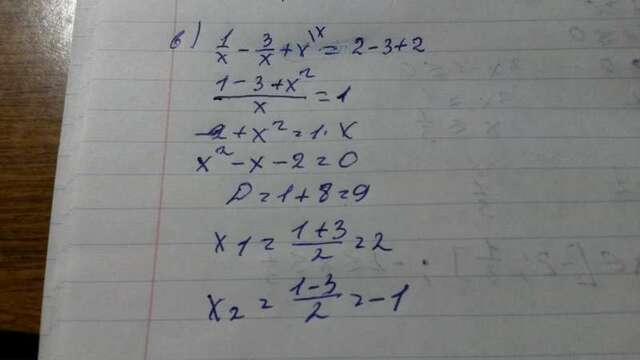 в) 1/x - 3/x + x\x = 2-3+2
1-3+x²/x = 1
-2+x²=1·x
x²-x-2=0
D=1+8=9
x1 = 1+3/2 = 2
x2 = 1-3/2 = -1